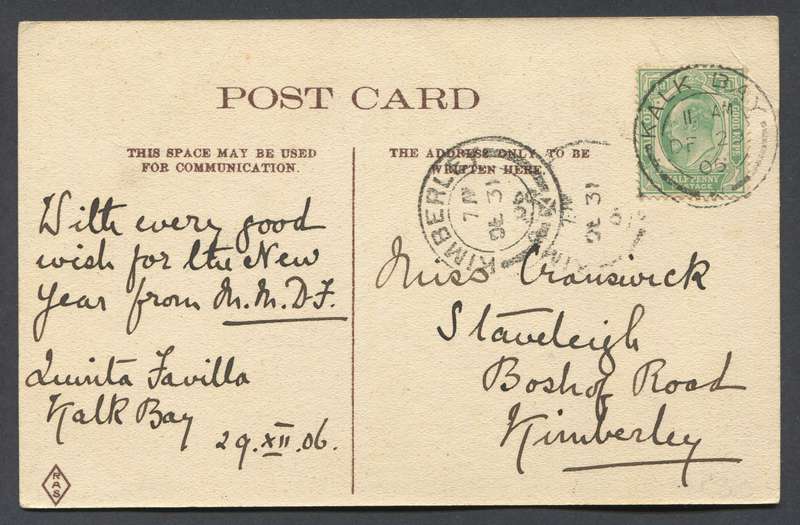 POST CARD
THIS SPACE MAY BE USED
FOR COMMUNICATION.
THE ADDRESS ONLY TO BE
WRITTEN HERE.
KALK BAY
11 AM
06
HALF PENNY
POSTAGE
KIMBERLEY
DE 31
06
DE 31
With every good
wish for the New
Year from M.M.D.F.
Favilla
Kalk Bay
29.XII.06.
Miss Cranswick
Staveleigh
Boshof Road
Kimberley
RAS